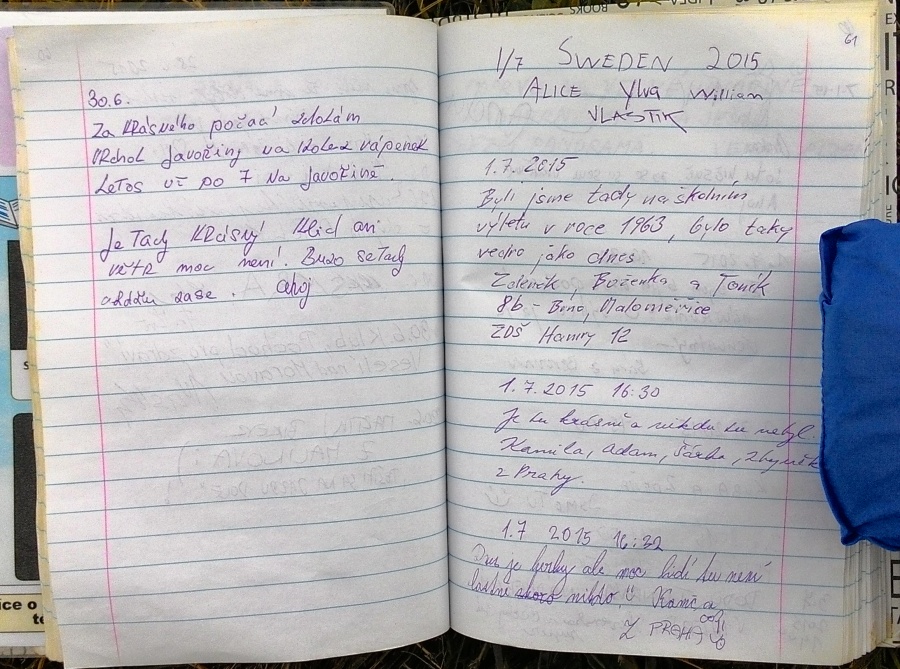 30.6.
Za krásného počací zdolám
vrchol Javořiny na kolez vápenek
Letos už po 7 na Javořině.
Je tady krásný klid ani
větr moc není. Brzo se tady
zase. ahoj
61
1/7 SWEDEN 2015
ALICE Ylva William
VLASTIK
1.7.2015
Byli jsme tady na školním
výletu v roce 1963, bylo taky
vedro jako dnes
Zdeněk, Boženka a Toník
8b - Brno, Maloměřice
ZDŠ Hamry 12
1.7.2015 16:30
Je tu krásně a nikdo tu nebyl.
Kamila, Adam, Šárka, Zbyněk
z Prahy.
1.7 2015 16:32
je ale moc lidí tu není
skoro nikdo.
Z PRAHY
BOOKS